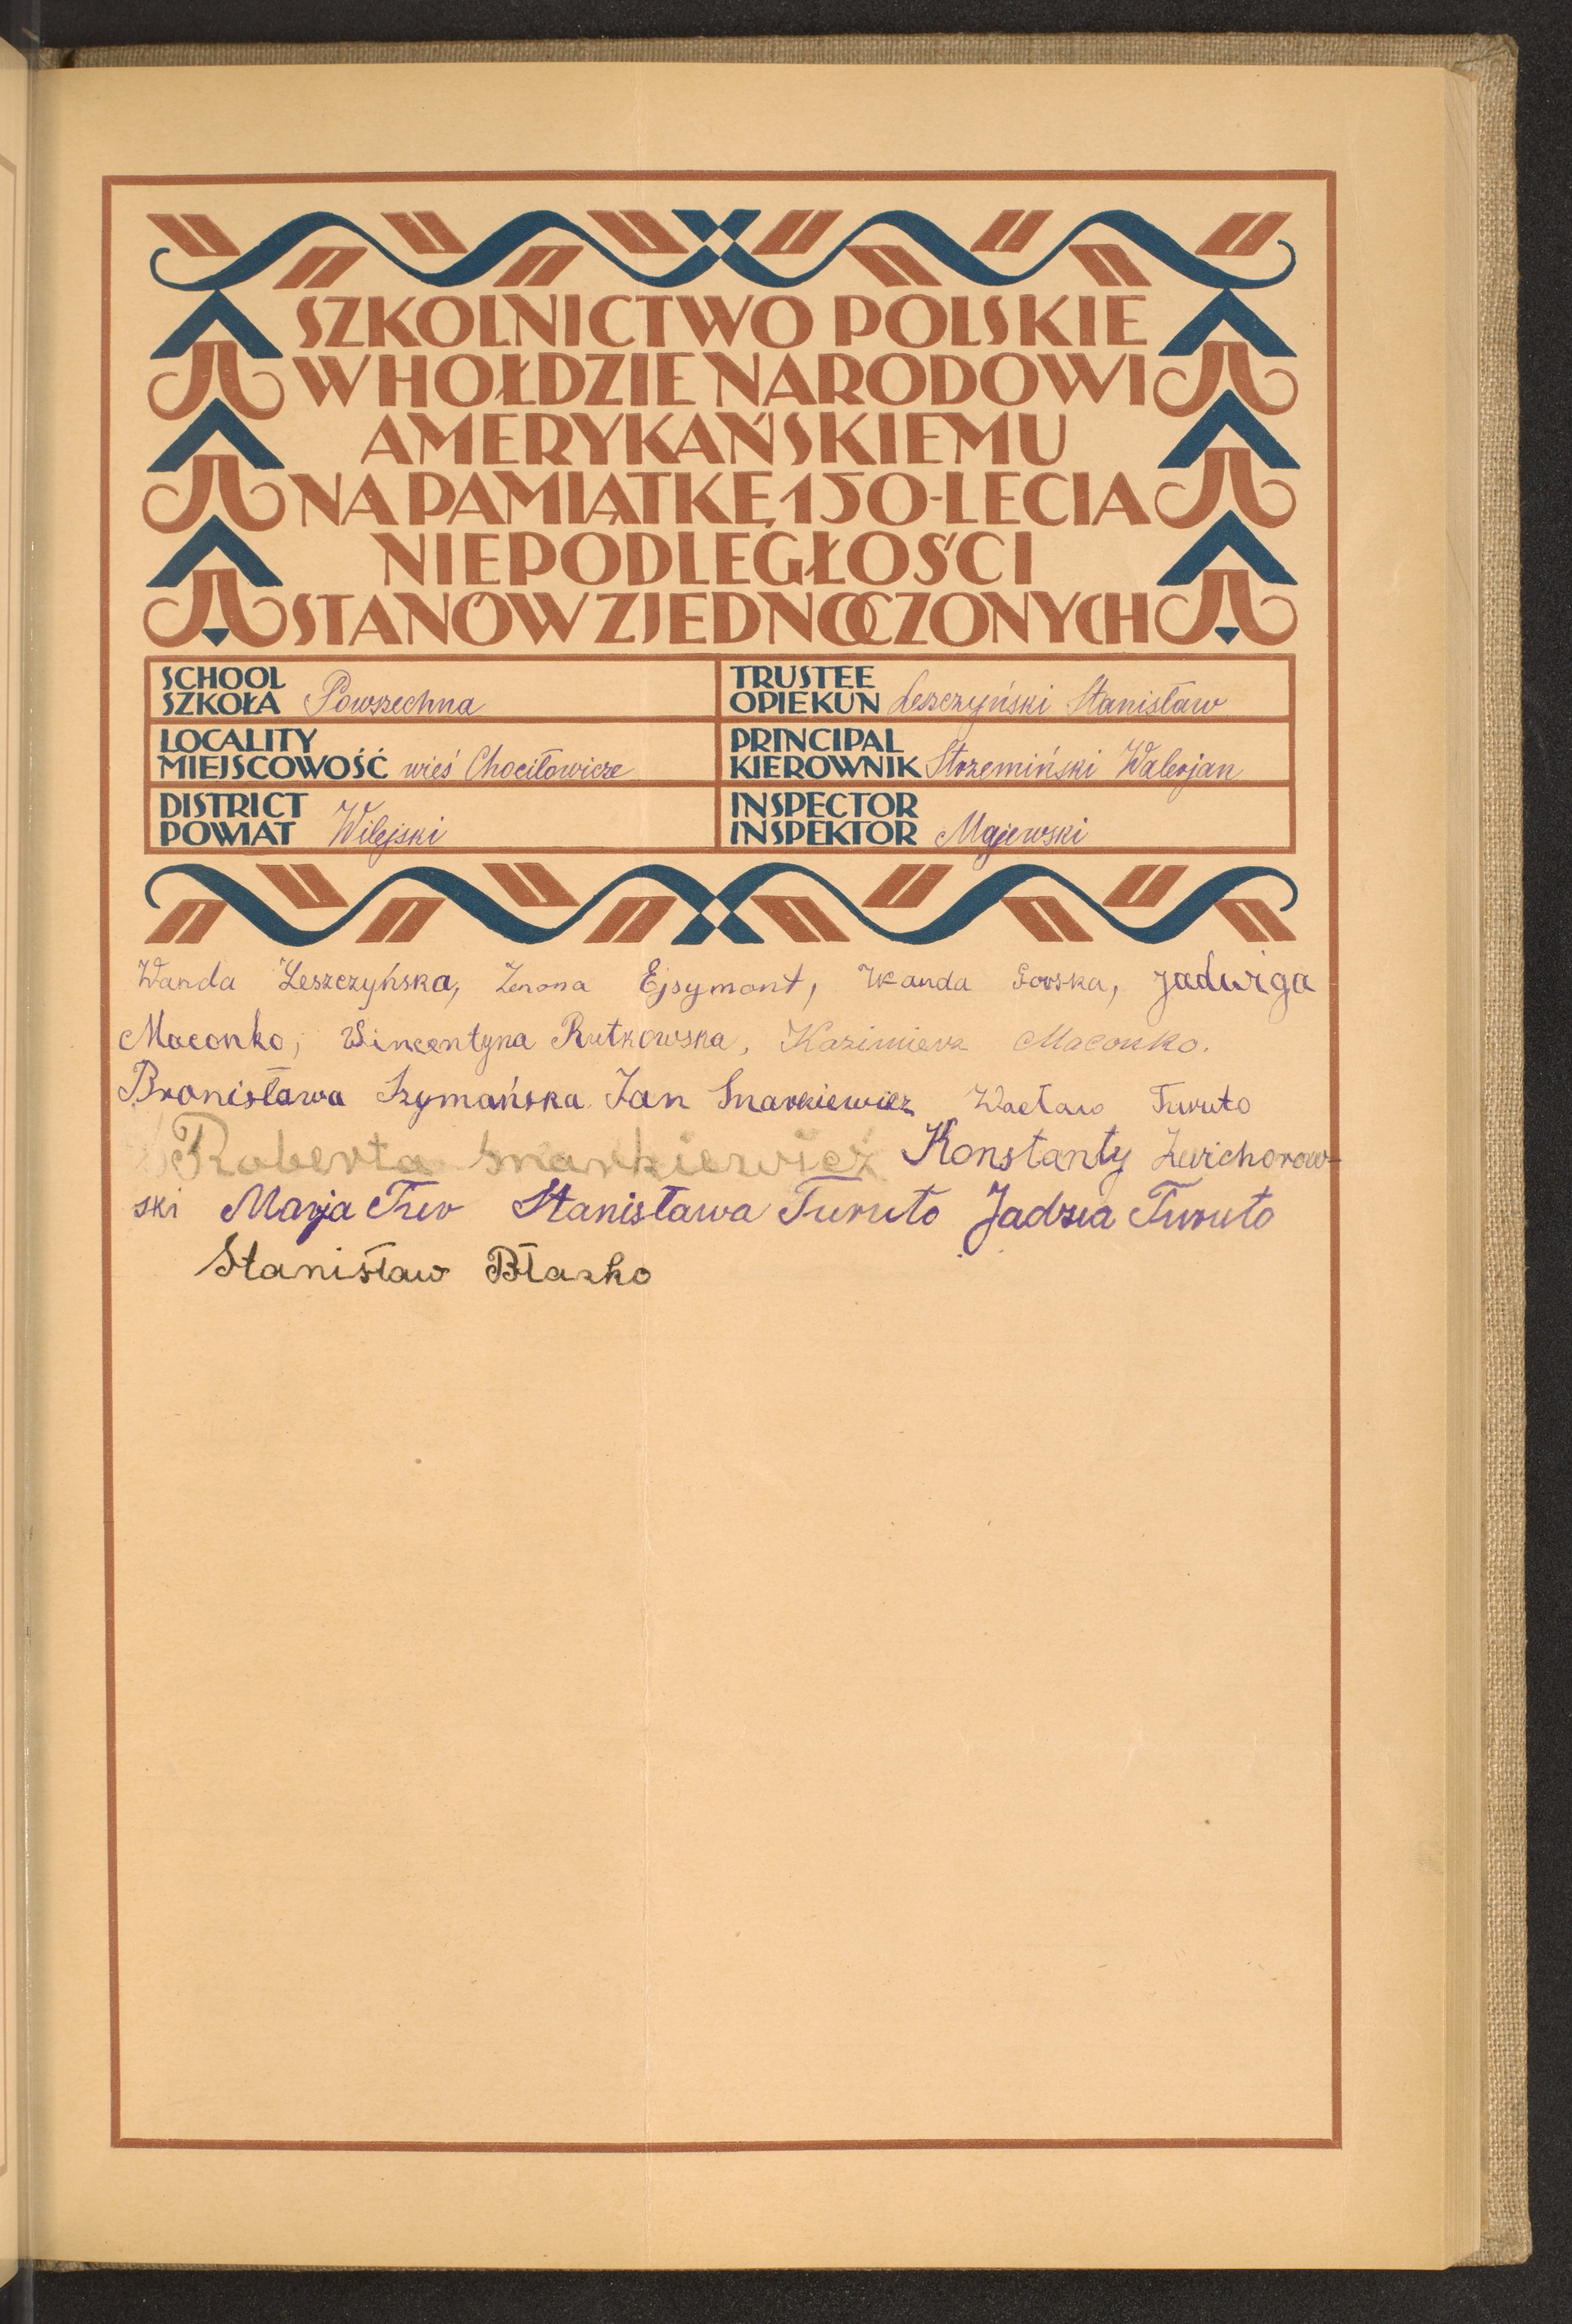 SZKOLNICTWO POLSKIE
W HOŁDZIE NARODOWI
AMERYKAŃSKIEMU
NA PAMIĄTKĘ 150-LECIA
NIEPODLEGŁOŚCI
STANÓW ZJEDNOCZONYCH
SCHOOL
SZKOŁA Powszechna
TRUSTEE
OPIEKUN Leszczyński Stanisław
LOCALITY
MIEJSCOWOŚĆ wieś Chociłowicze
PRINCIPAL
KIEROWNIK Strzemiński Walerjan
DISTRICT
POWIAT Wilejski
INSPECTOR
INSPEKTOR Majewski
Wanda Leszczyńska, Zenona Ejsymont, Wanda Gorska, Jadwiga
Maconko, Wincentyna Rutkowska, Kazimierz Maconko.
Bronisława Szymańska Jan Snarkiewicz Wacław Turuto
Roberta Snarkiewicz Konstanty Zwichorow-
ski Marja Tur Stanisława Turuto Jadzia Turuto
Stanisław Błazko